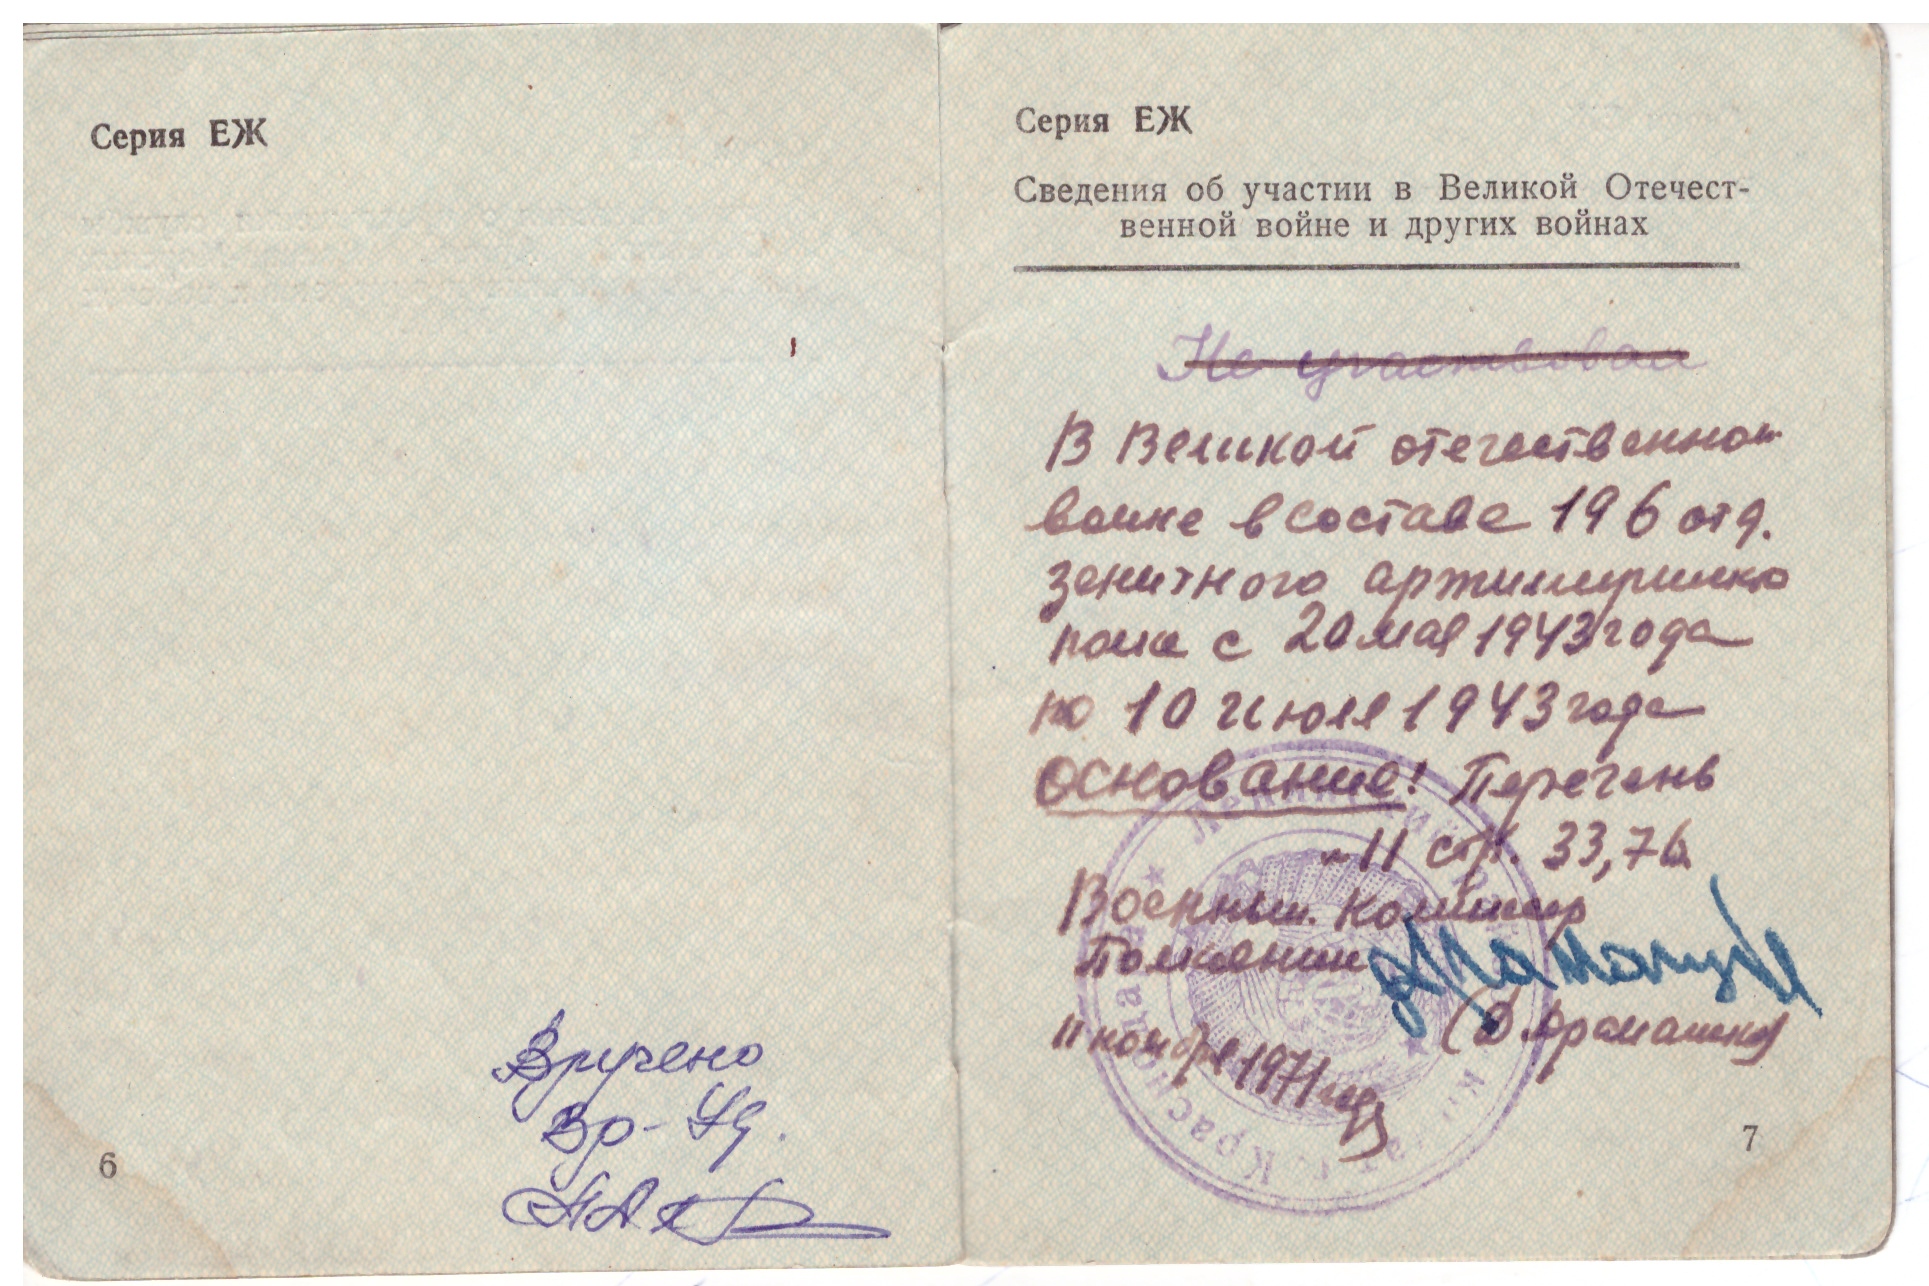 Серия ЕЖ
Вручено
Вр-
6
Серия ЕЖ
Сведения об участии в Великой Отечест-
венной войне и других войнах
Не участвовал
В Великой отечественной
войне в составе 196 отд.
зенитного
полка с 20 мая 1943 года
по 10 июля 1943 года
Основание: Перечень
11 стр. 33,76
Военный Комиссар
Полковник
11 ноября 1971 года
7